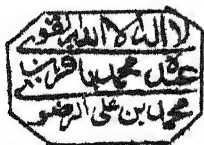 لا اله الا الله
عبده محمد باقر بن
محمد بن علی الرضوی